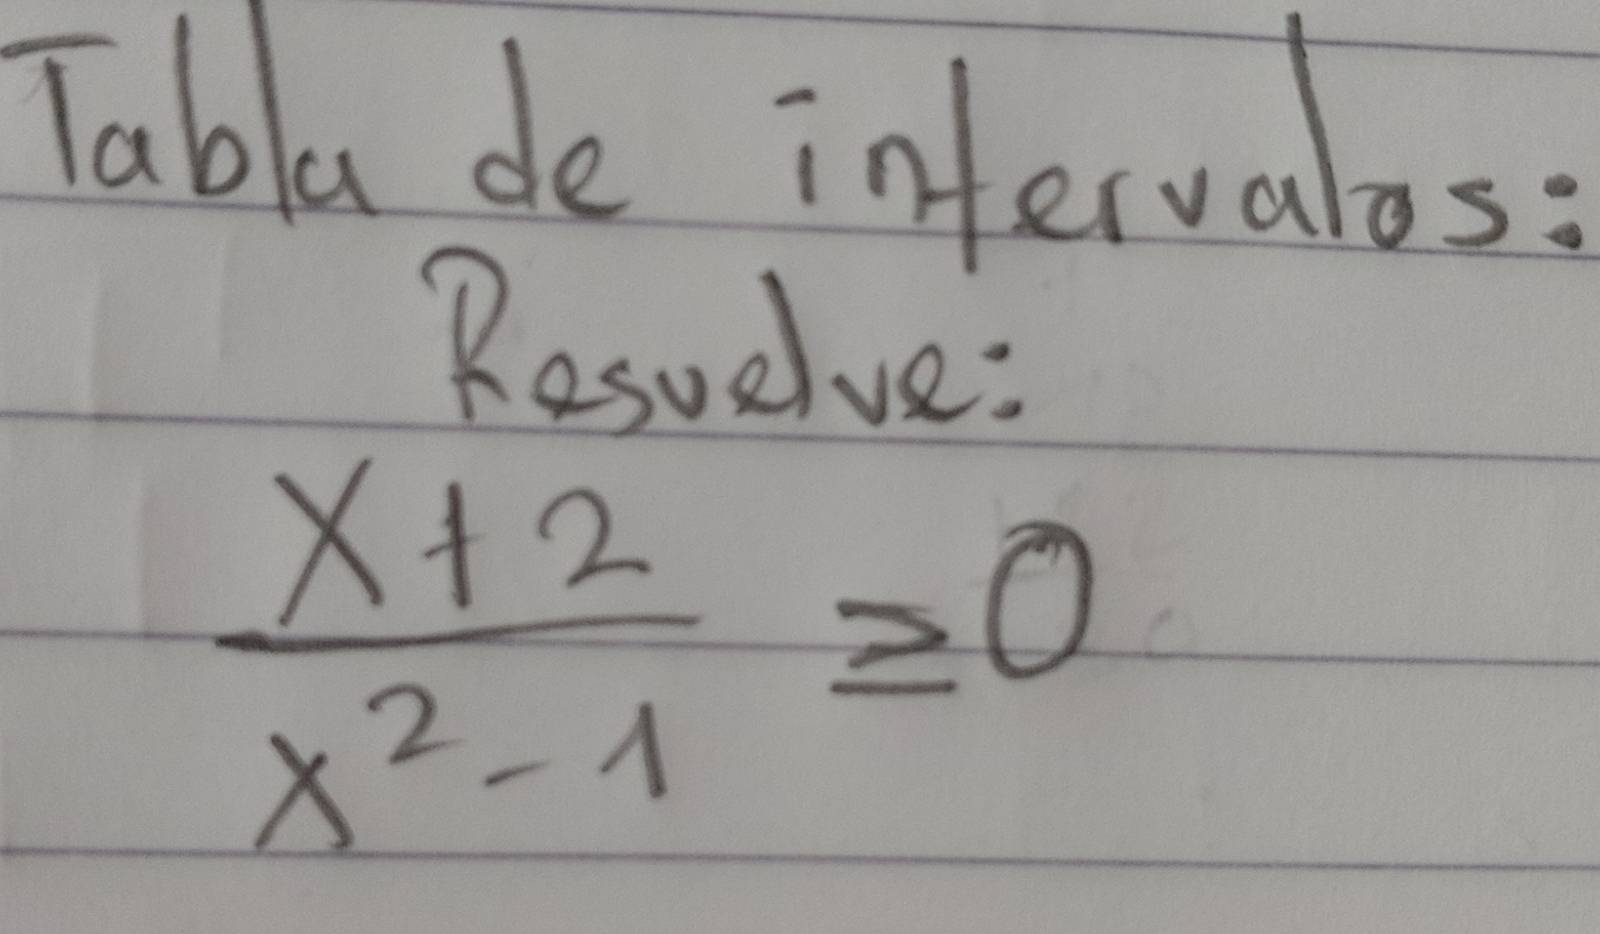 Tabla de intervalos:
Resuelve:
x + 2
≥ 0
x² - 1